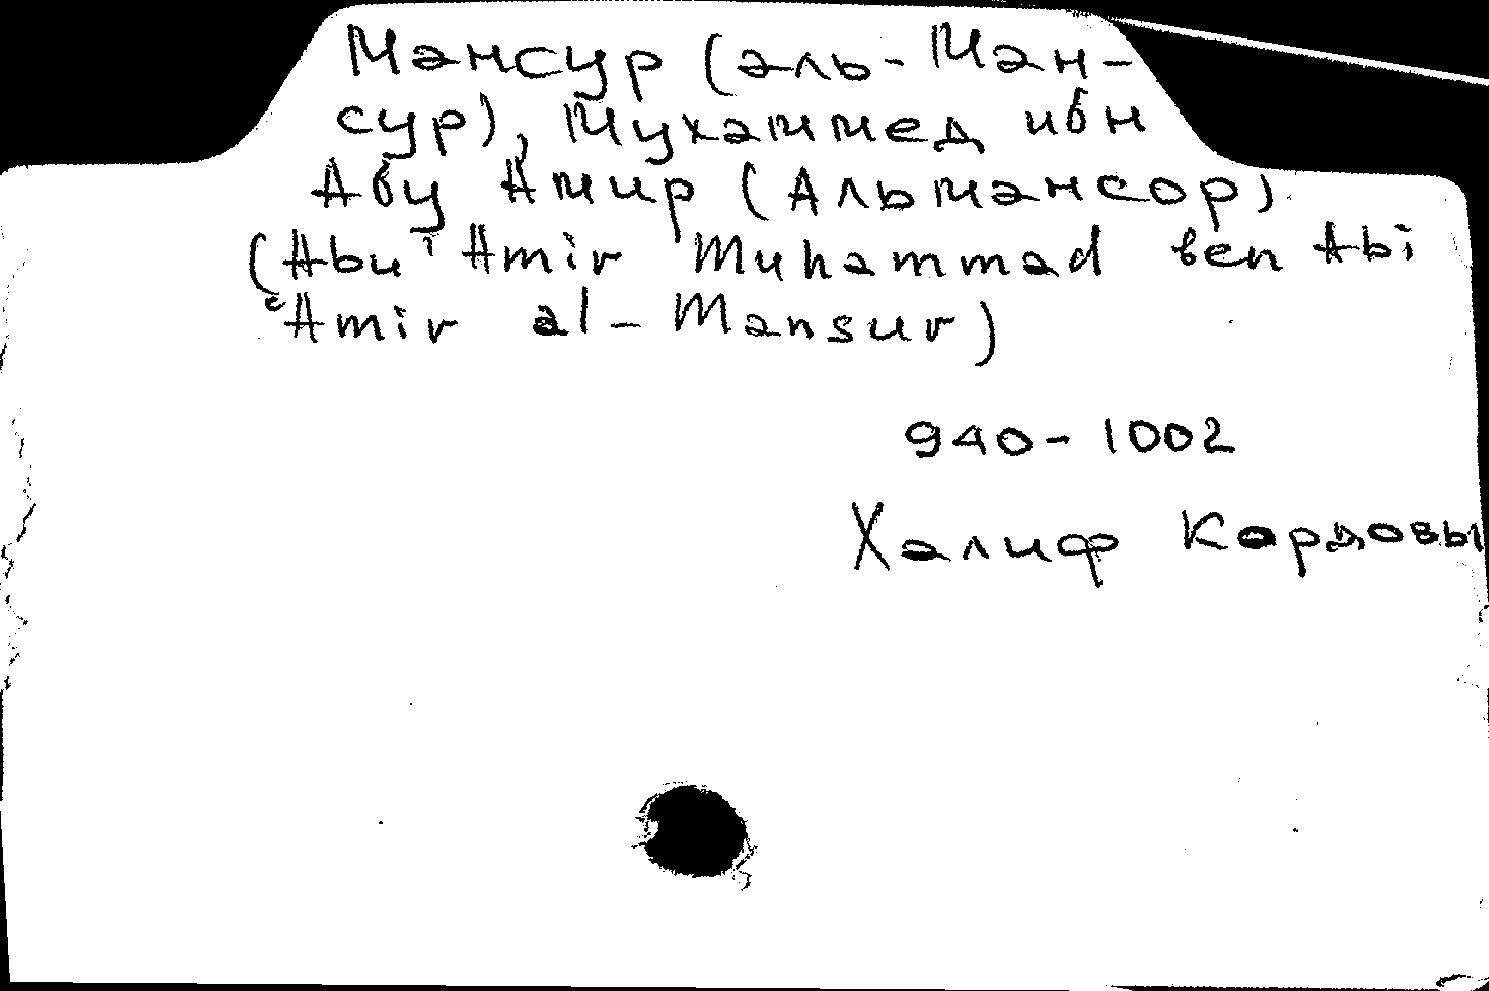 Мансур (аль-Ман-
сур), Мухаммед ибн
Абу Амир (Альмансор)
(Abu ʿAmir Muhammad ben Abi
ʿAmir al-Mansur)
940-1002
Халиф Кордовы